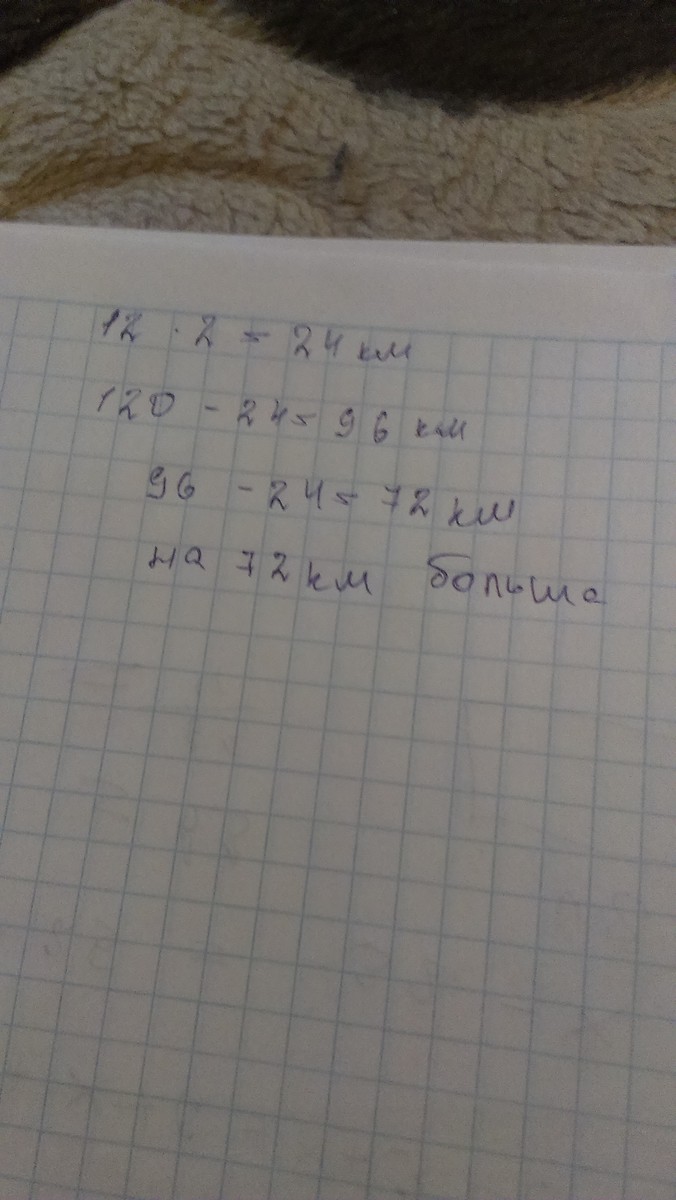 12 · 2 = 24 км
120 - 24 = 96 км
96 - 24 = 72 км
на 72 км больше